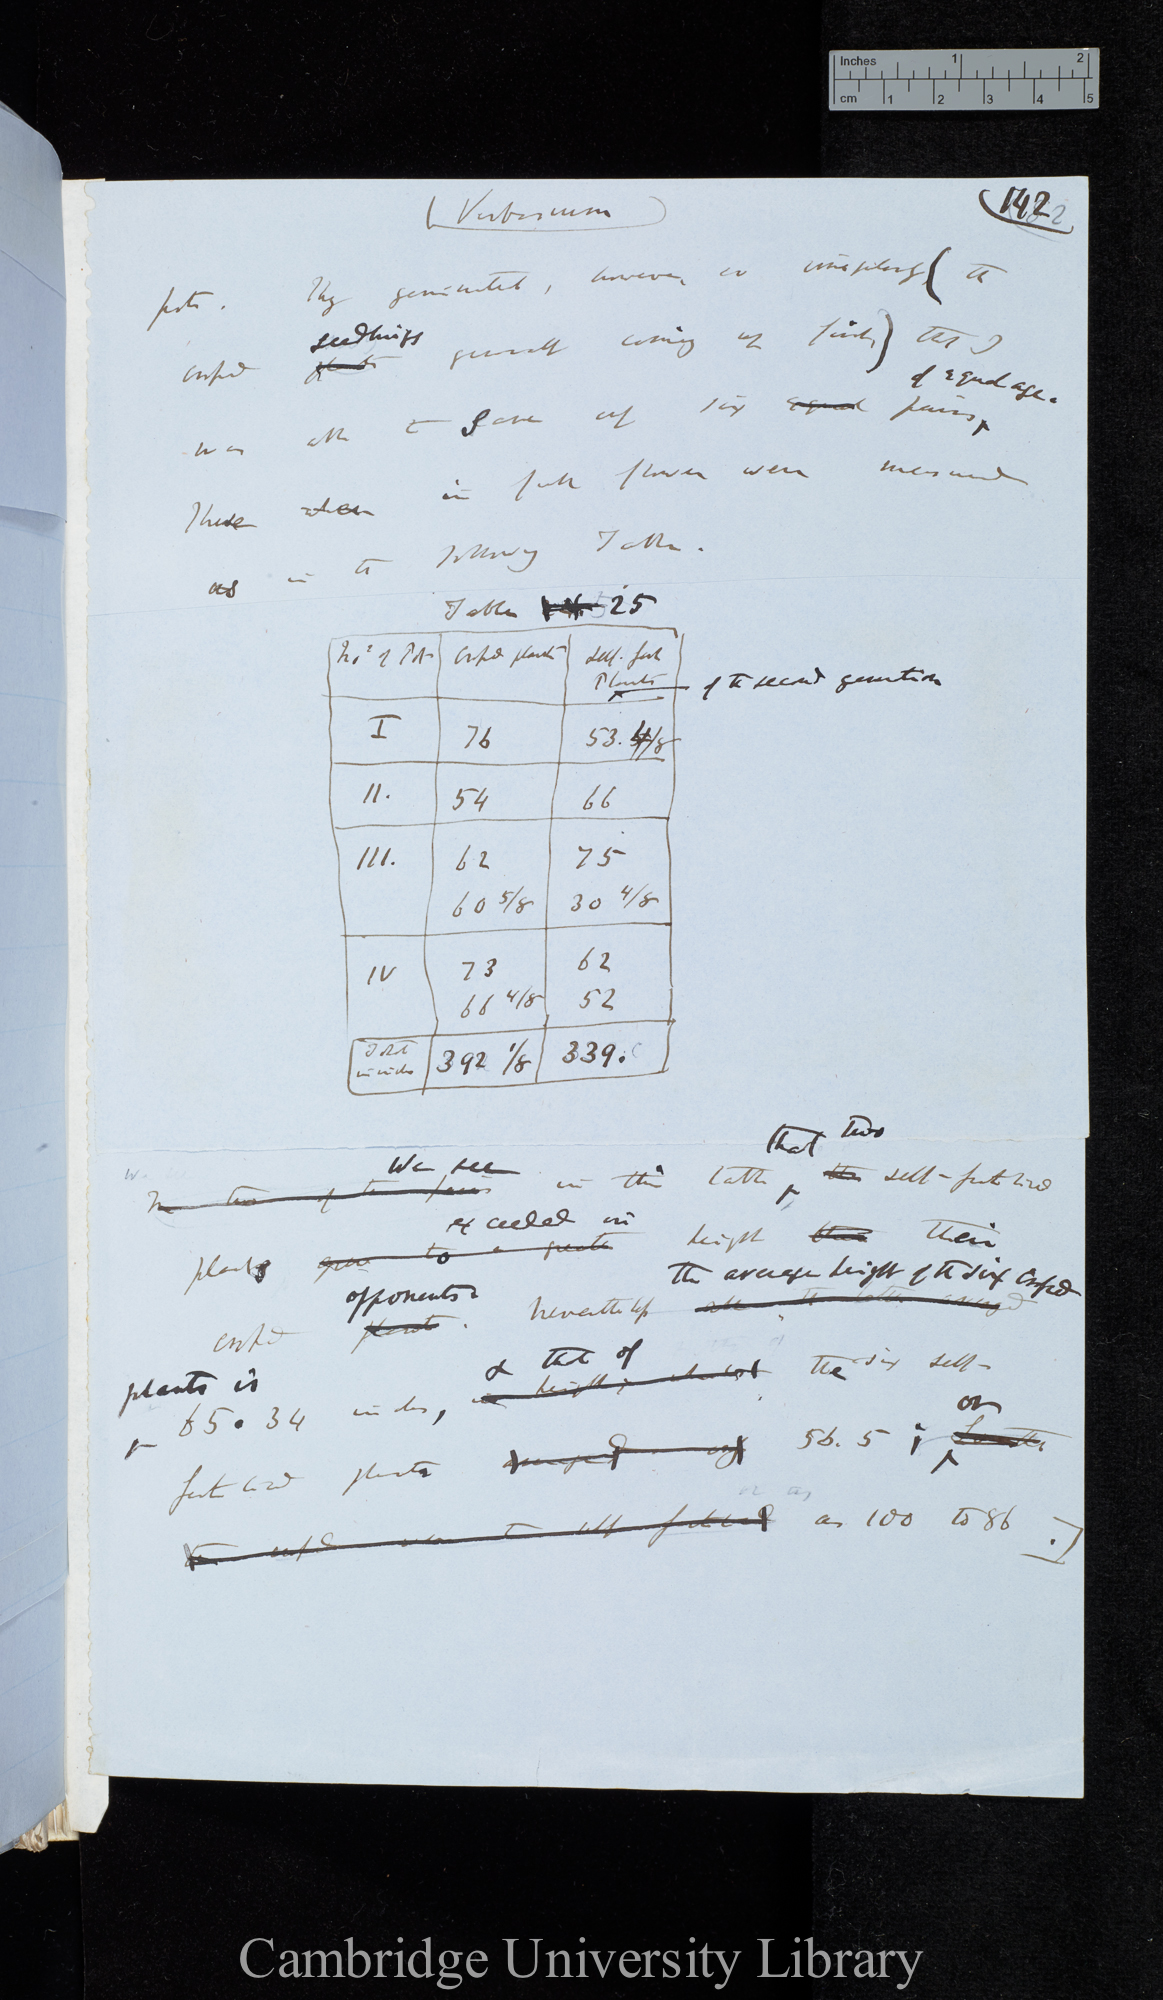 Inches 1 2
cm 1 2 3 4 5
(Verbascum) 142
pots. They germinated, however, so unsimultaneously (the
crossed plants seedlings generally coming up first) that I
was able to save only six equal pairs, of equal age.
These when in full flower were measured
as in the following Table.
Table 25
No. of Pot Crossed plants Self-fert Plants of the second generation
I 76 53. 4/8
II. 54 66
III. 62 75
60 5/8 30 4/8
IV 73 62
66 4/8 52
Total in inches 392 1/8 339.
We see in this table that two the self-fertilised
plants grew to a greater exceeded in height their
crossed plants opponents. Nevertheless the average height of the six crossed
plants is 65.34 inches, & that of the six self-
fertilised plants 56.5; or
as 100 to 86.]
Cambridge University Library